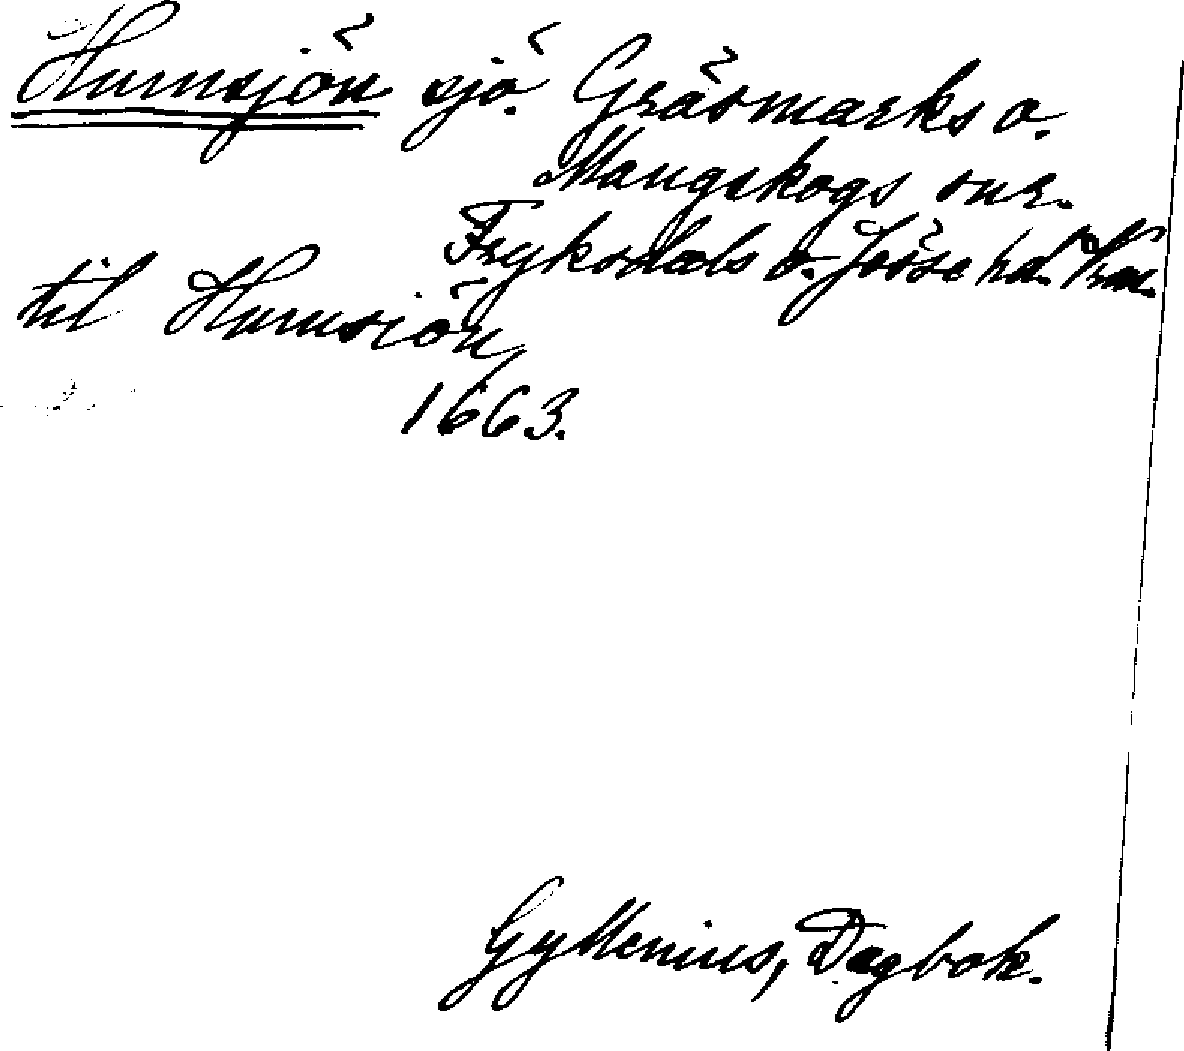 Humsjön sjö. Gräsmarks o.
Mangskogs snr.
Fryksdals o. Jösse hd. Vrm.
til Humsiön,
1663.
Gyllenius, Dagbok.